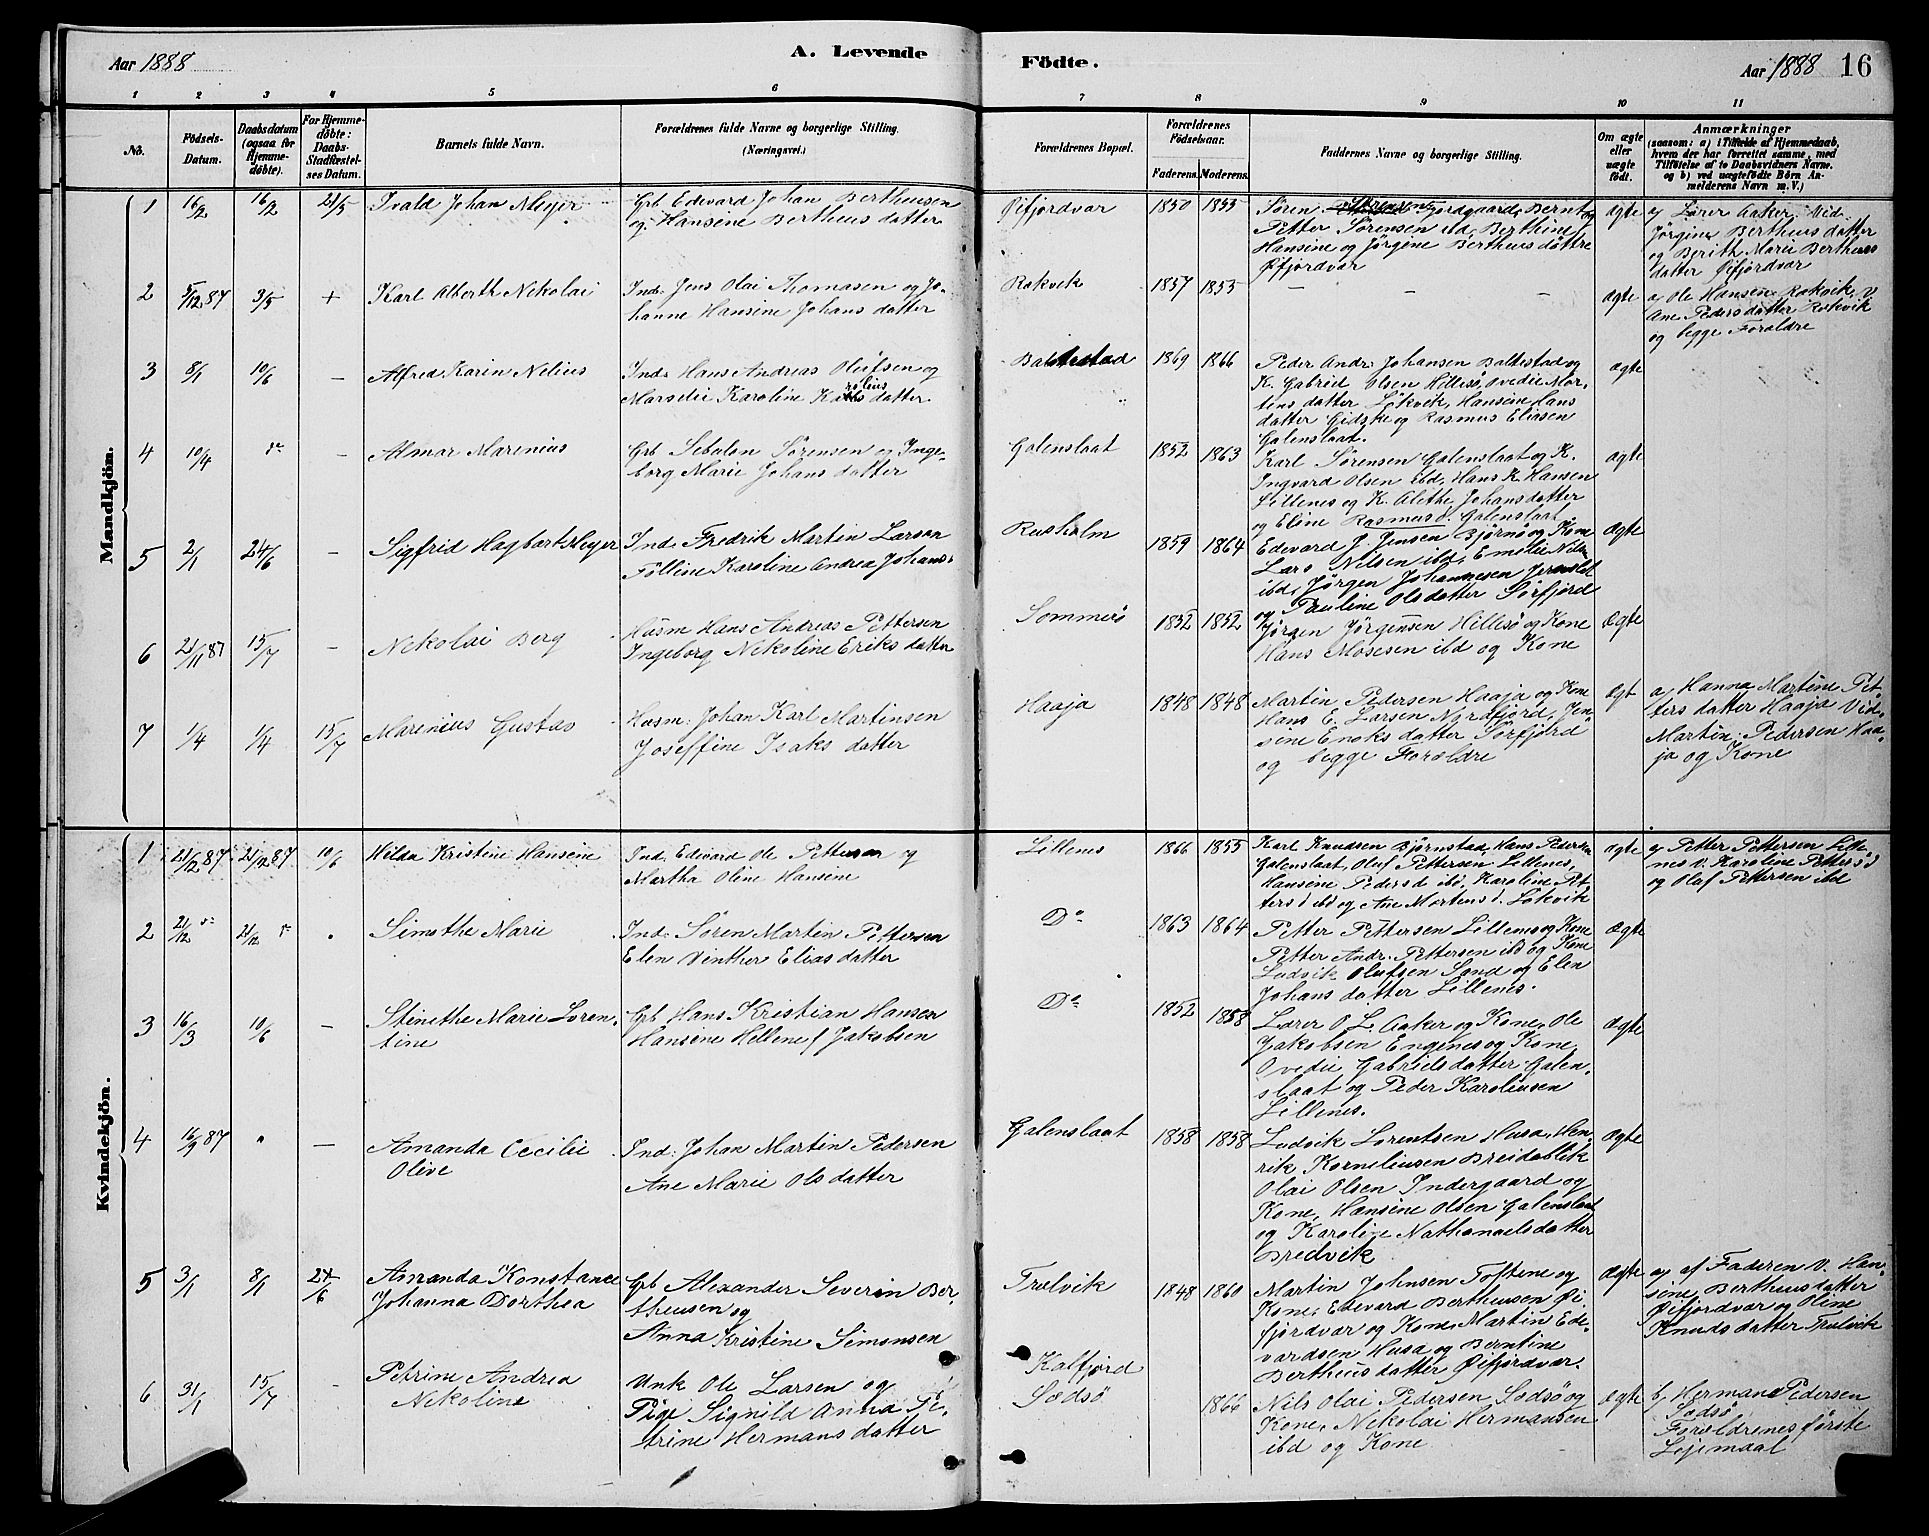 Aar 1888
A. Levende
Födte.
Aar 1888
16
1 2 3 4 5 6 7 8 9 10 11
No.
Födsels-Datum.
Daabsdatum (ogsaa for Hjemme-döbte).
For Hjemme-döbte: Daabs-Stadfæstel-ses Datum.
Barnets fulde Navn.
Forældrenes fulde Navne og borgerlige Stilling.
(Næringsvei.)
Forældrenes Bopæl.
Forældrenes Födselsaar.
Faderens. Moderens.
Faddernes Navne og borgerlige Stilling.
Om ægte eller uægte födt.
Anmærkninger
(saasom: a) i Tilfælde af Hjemmedaab,
hvem der har forrettet samme, med
Tilföielse af to Daabsvidners Navne.
og b) ved uægtefödte Börn An-
melderens Navn m. V.)
Mandkjön.
1 16/2 16/2 21/5 Ivald Johan Meyer
Grb Edevard Johan Bertheusen
og Hansine Bertheus datter
Øifjordvær 1850 1853
Søren Fjordgaard, Bernt og
Petter Sørensen ibd, Berthine
Hansine og Jørgine Bertheus døttre
Øifjordvær
ægte
a, Lærer Aaker, Vid.
Jørgine Bertheus datter
og Berith Marie Bertheus
datter Øifjordvær
2 5/12 87 3/5 + Karl Alberth Nikolai
Ind. Jens Olai Thomasen og Jo-
hanne Hansine Johans datter
Rakvik 1857 1853 — — —
ægte
a, Ole Hansen Rakvik, V
Ane Pedersdatter Rakvik
og begge Forældre
3 8/1 10/6 — Alfred Karin Nelius
Ind. Hans Andreas Olufsen og
Marselie Karoline Karolius datter
Baltestad 1869 1866
Peder Andr. Johansen Baldestad og
K. Gabriel Olsen Hillesø, Ovedie Mor-
tens datter Løkvik, Hansine Hans
datter Gidske og Rasmus Eliasen
Galenslaat.
ægte
4 10/4 — Almar Marenius
Grb Sebalon Sørensen og Inge-
borg Marie Johans datter
Galenslaat 1852 1863
Karl Sørensen Galenslaat og K.
Ingvard Olsen ibd, Hans K. Hansen
Lillenes og K. Alethe Johansdatter
og Eline Rasmusd. Galenslaat
ægte
5 2/1 24/6 — Sigfrid Hagbart Meyer
Ind. Fredrik Martin Larsen
Folline Karoline Andrea Johans.
Rusholm 1859 1864
Edevard J. Jensen Bjørnø og Kone
Lars Nilsen ibd, Emelie Nils
ibd, Jørgen Johannesen
og Pauline Olsdatter Sørfjord
ægte
6 21/11 87 15/7 — Nikolai Berg
Husm Hans Andreas Pettersen
Ingeborg Nikoline Eriks datter
Sommerø 1852 1852
Jørgen Jørgensen Hillesø og Kone
Hans Mosesen ibd og Kone
Ægte
7 1/4 1/4 15/7 Marenius Gustav
Husm. Johan Karl Martinsen
Joseffine Isaks datter
Haaja 1848 1848
Martin Pedersen Haaja og Kone
Hans E. Larsen Nordfjord, Jen-
sine Enoks datter Sørfjord
og begge Forældre
ægt
a, Hanna Martine Pet-
ters datter Haaja Vid.
Martin Pedersen Haa-
ja og Kone
Kvindekjön.
1 21/12 87 21/12 87 10/6 Hilda Kristine Hansine
Ind. Edevard Ole Pettersen og
Martha Oline Hansine
Lillenes 1866 1855
Karl Knudsen Bjørnstad, Hans Pedersen
Galenslaat, Oluf Pettersen Lillenes,
Hansine Peders d ibd, Karoline Pet-
ters d ibd og Ane Mortens d. Løkvik
ægte
a, Petter Pettersen Lille-
nes V. Karoline Petters d
og Oluf Pettersen ibd
2 21/12 21/12 Simothe Marie
Ind. Søren Martin Pettersen
Elen Vinther Elias datter
Do 1863 1864
Petter Pettersen Lillenes og Kone
Petter Andr. Pettersen ibd og Kone
Ludvik Olufsen Sand og Elen
Johans datter Lillenes.
Ægte
3 16/3 10/6 — Stinethe Marie Loren-
tine
Grb Hans Kristian Hansen
Hansine Hellene f Jakobsen
Do 1852 1858
Lærer O. L. Aaker og Kone, Ole
Jakobsen Engenes og Kone,
Ovedie Gabriels datter Galen-
slaat og Peder Karoliusen
Lillenes.
Ægte
4 16/9 87 — Amanda Cecilie
Olive
Ind. Johan Martin Pedersen
Ane Marie Ols datter
Galenslaat 1858 1858
Ludvik Lorentsen Husa, Hen-
rik Korneliusen Breidablik
Olai Olsen Indergaard og
Kone, Hansine Olsen Galenslaat
og Karoline Nathanaelsdatter
Bredvik
ægte
5 3/1 8/1 24/6 Amanda Konstance
Johanna Dorthea
Grb Alexander Severin Ber-
theusen og
Anna Kristine Simonsen
Trælvik 1848 1860
Martin Johnsen Toftene og
Kone, Edevard Bertheusen Øi-
fjordvær og Kone, Martin Ede-
vardsen Husa og Berntine
Bertheus datter Øifjordvær.
Ægte
a, af Faderen V. Han-
sine Bertheus datter
Øifjordvær og Oline
Knuds datter Trælvik
6 31/1 15/7 - Petrine Andrea
Nikoline
Unk Ole Larsen og
Pige Signild Anna Pe-
trine Hermans datter
Kalfjord
Sødsø
1866
Nils Olai Pedersen Sødsø og
Kone, Nikolai Hermansen
ibd og Kone
ægte
b, Herman Pedersen
Sødsø
Forældrenes første
Lejemaal